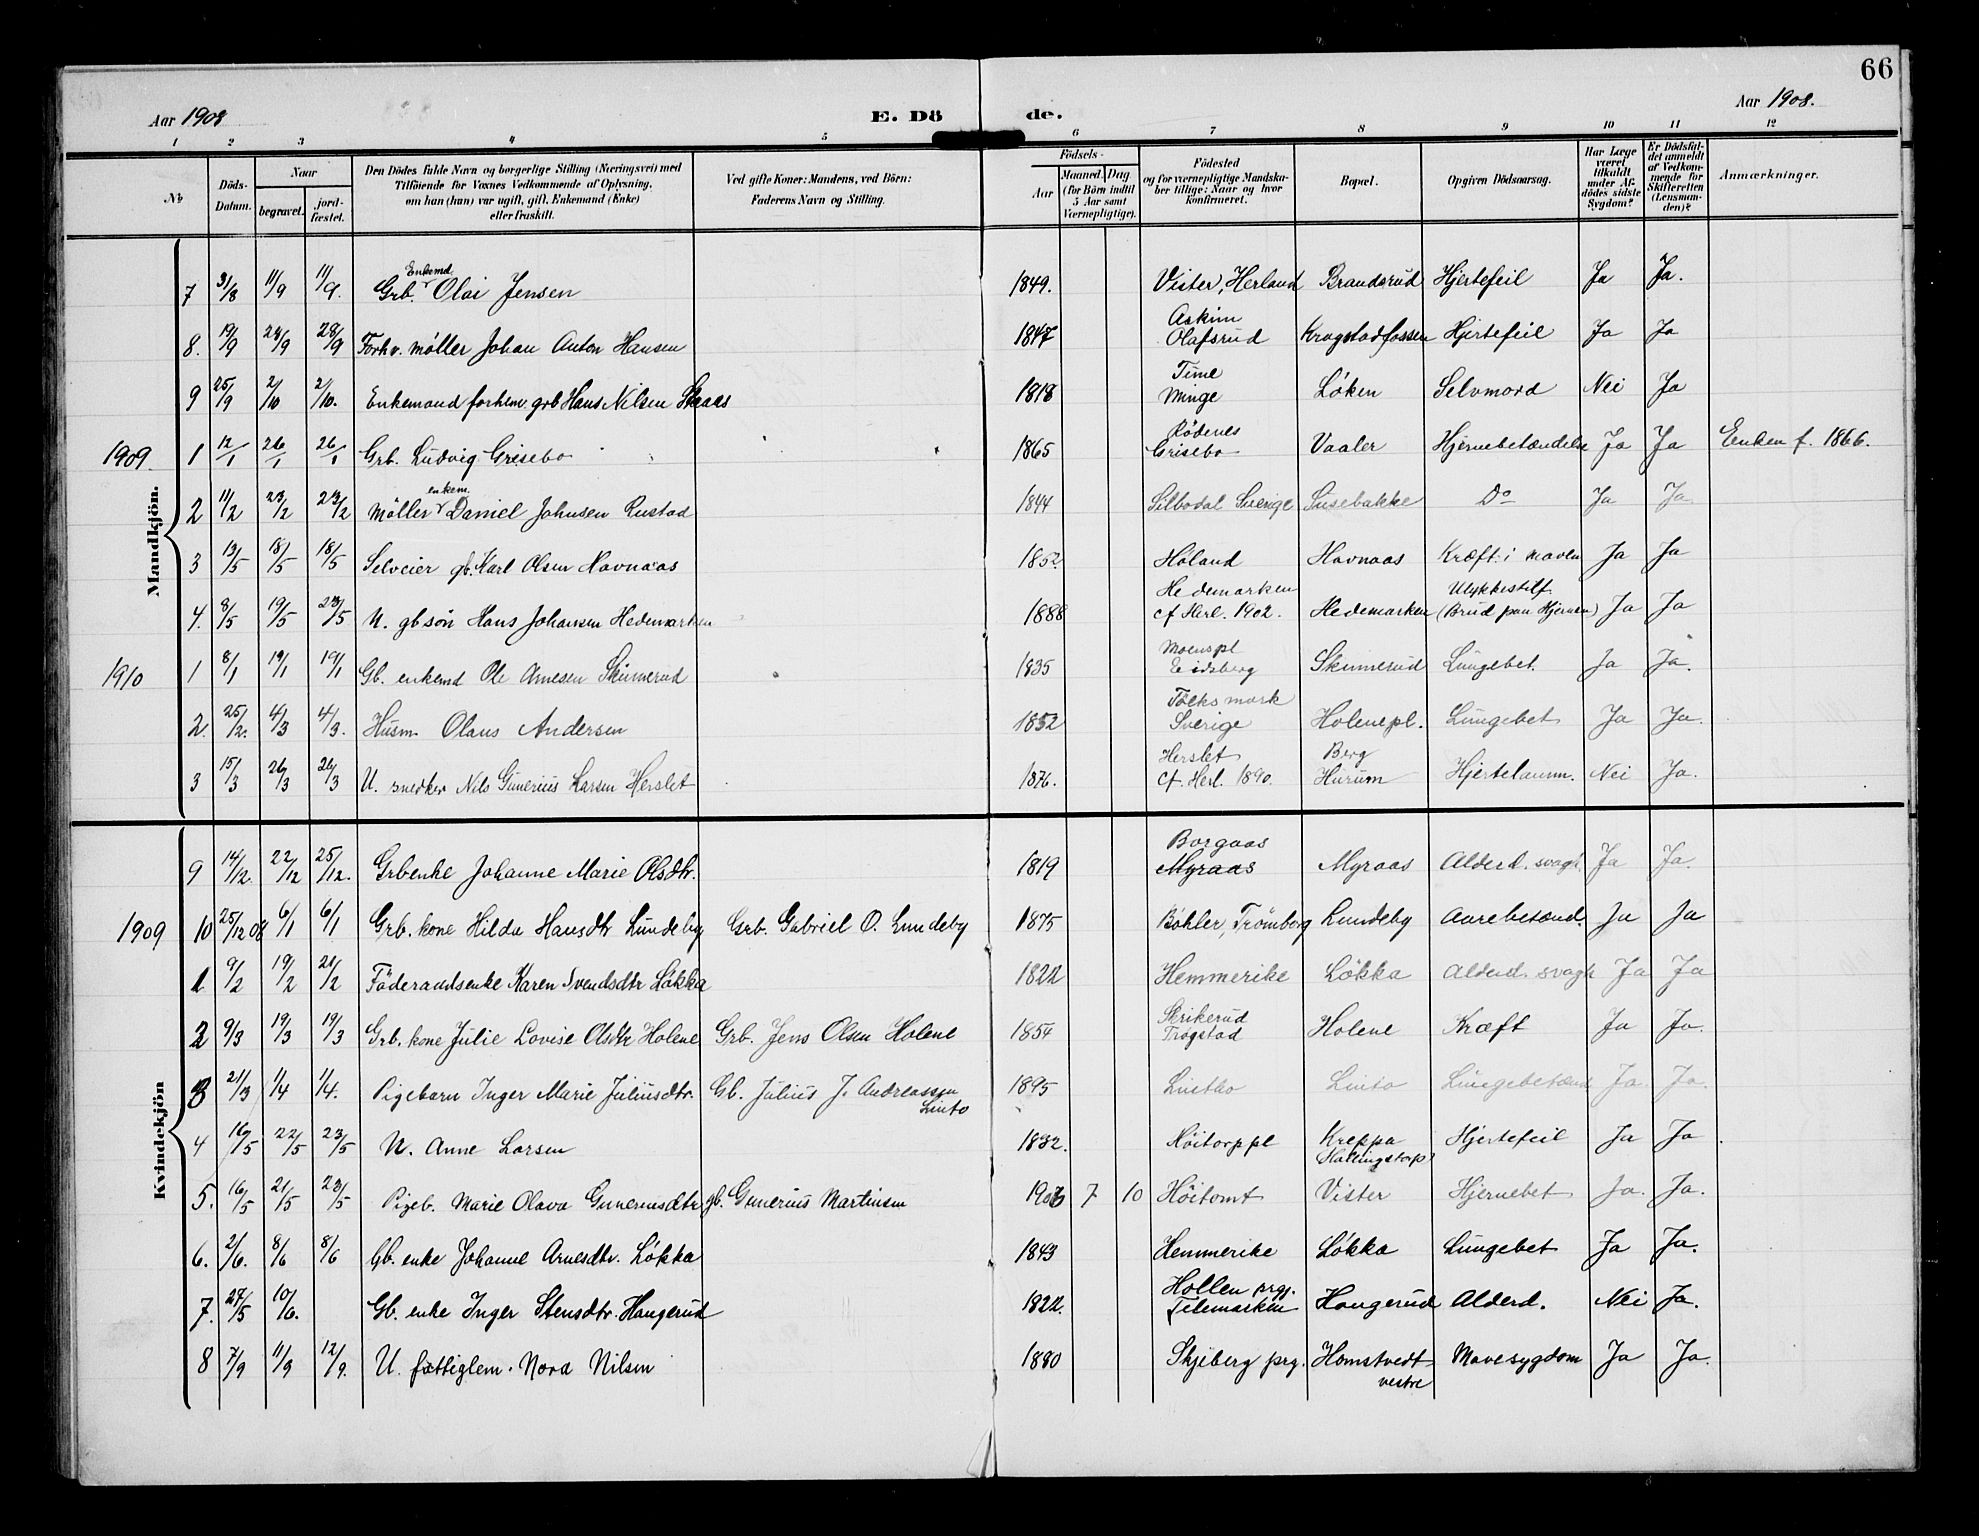 66
Aar 1908
E. Dö
de.
Aar 1908.
1 2 3 4 5 6 7 8 9 10 11 12
No
Döds-
Datum.
Naar
begravet.
jord-
fæstet.
Den Dödes fulde Navn og borgerlige Stilling (Næringsvei) med
Tilföiende for Voxnes Vedkommende af Oplysning,
om han (hun) var ugift, gift, Enkemand (Enke)
eller fraskilt.
Ved gifte Koner: Mandens, ved Börn:
Faderens Navn og Stilling.
Födsels-
Aar
Maaned. Dag.
(for Börn indtil
5 Aar samt
Værnepligtige).
Födested
og for værnepligtige Mandska-
ber tillige: Naar og hvor
Konfirmeret.
Bopæl.
Opgiven Dödsaarsag.
Har Læge
været
tilkaldt
under Af-
dödes sidste
Sygdom?
Er Dödsfal-
det anmeldt
af Vedkom-
mende for
Skifteretten
(Lensman-
den)?
Anmærkninger.
Mandkjön.
7 31/8 11/9 11/9. Grb. Enkemd. Olai Jensen 1849. Vister, Herland Brandsrud Hjertefeil Ja Ja.
8. 19/9 28/9 28/9 Forhv. möller Johan Anton Hansen 1847 Askim Olafsrud Kragstadfossen Hjertefeil Ja Ja
9 25/9 2/10 2/10. Enkemand forhen. grb Hans Nilsen Skaas 1818 Tune Minge Löken Selvmord Nei Ja
1909. 1 12/1 26/1 26/1 Grb. Ludvig Grisebo 1865 Rödenes Grisebo Vaaler Hjernebetændelse Ja Ja Enken f. 1866.
2 11/2 23/2 23/2 Möller enkem. Daniel Johnsen Rustad 1844 Silbodal Sverige Susebakke Do Ja Ja
3 13/5 18/5 18/5 Selveier gb. Karl Olsen Havnaas 1852. Höland Havnaas Kræft i maven Ja Ja
4. 8/5 19/5 23/5 U. gb sön Hans Johansen Hedemarken 1888 Hedemarken cf Herl. 1902. Hedemarken Ulykkestilf. (Brud paa Hjernen) Ja Ja
1910 1 8/1 19/1 19/1 Gb. enkemd Ole Arnesen Skimerud 1835 Moenspl Eidsberg Skimerud Lungebet. Ja Ja.
2. 25/2. 4/3 4/3. Husm. Olaus Andersen 1852 Töcksmark Sverige Holenepl. Lungebet Ja Ja.
3 15/3 26/3 26/3 U. snedker Nils Gunerius Larsen Herslet 1876. Herslet cf. Herl. 1890. Berg Hurum Hjertelamm. Nei Ja.
Kvindekjön
9 14/12. 22/12 25/12. Grbenke Johanne Marie Olsdtr. 1819 Borgaas Myraas Myraas Alderd. svagh. Ja Ja.
1909 10 25/12 08 6/1 6/1 Grb. kone Hilda Hansdtr Lundeby Grb. Gabriel O. Lundeby 1875 Böhler, Trömborg Lundeby Aarebetænd. Ja Ja
1 9/2 19/2 21/2 Föderaadsenke Karen Svendsdtr Lökka 1822 Hemmerike Lökka Alderd. svagh Ja Ja
2 9/3 19/3 19/3 Grb. kone Julie Lovise Olsdtr Holene Grb. Jens Olsen Holene 1854 Skrikerud Trögstad Holene Kræft Ja Ja.
3 21/3 1/4 1/4. Pigebarn Inger Marie Juliusdtr. Gb. Julius J. Andreassen Linto 1895 Lintho Linto Lungebetænd Ja Ja.
4 16/5 22/5 23/5 U. Anne Larsen 1832. Höitorppl Kreppa Hallingstorp Hjertefeil Ja Ja
5. 16/5 21/5 23/5 Pigeb. Marie Olava Guneriusdtr gb. Gunerius Martinsen 1906 7 10 Höitomt Vister Hjernebet Ja. Ja.
6. 2/6. 8/6 8/6 Gb. enke Johanne Arnesdtr. Lökka 1843 Hemmerike Lökka Lungebet Ja Ja.
7. 27/5 10/6. Gb. enke Inger Stensdtr. Haugerud 1822. Hollen prgj. Telemarken Haugerud Alderd. Nei Ja.
8 7/9 11/9 12/9. U. fattiglem. Nora Nilsen 1880 Skjeberg prg. Homstvedt vestre Mavesygdom Ja Ja.